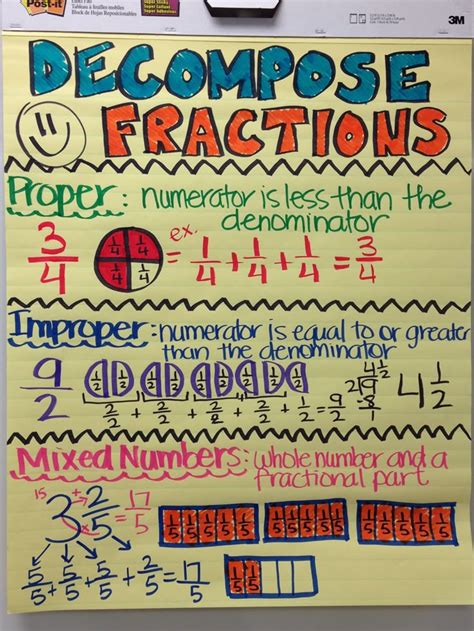 Post-it
Super Sticky
Super Collant
Super Adhesivo
Tableau à feuilles mobiles
Block de Hojas Reposicionables
3M
DECOMPOSE
FRACTIONS
Proper: numerator is less than the
denominator
3/4 1/4 1/4 1/4 1/4 ex. = 1/4 + 1/4 + 1/4 = 3/4
Improper: numerator is equal to or greater
than the denominator
9/2 1/2 1/2 1/2 1/2 1/2 1/2 1/2 1/2 1/2
2/2 + 2/2 + 2/2 + 2/2 + 1/2 = 9/2
4 1/2
2 9
-8
1
4 1/2
Mixed Numbers: whole number and a
fractional part
15 + x
3 2/5 = 17/5
1/5 1/5 1/5 1/5 1/5 1/5 1/5 1/5 1/5 1/5 1/5 1/5 1/5 1/5 1/5
5/5 + 5/5 + 5/5 + 2/5 = 17/5
1/5 1/5